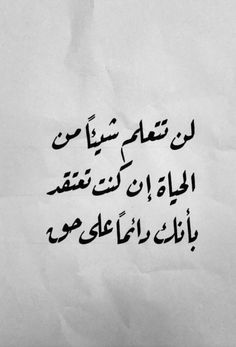 لن تتعلم شيئاً من
الحياة إن كنت تعتقد
بأنك دائماً على حق